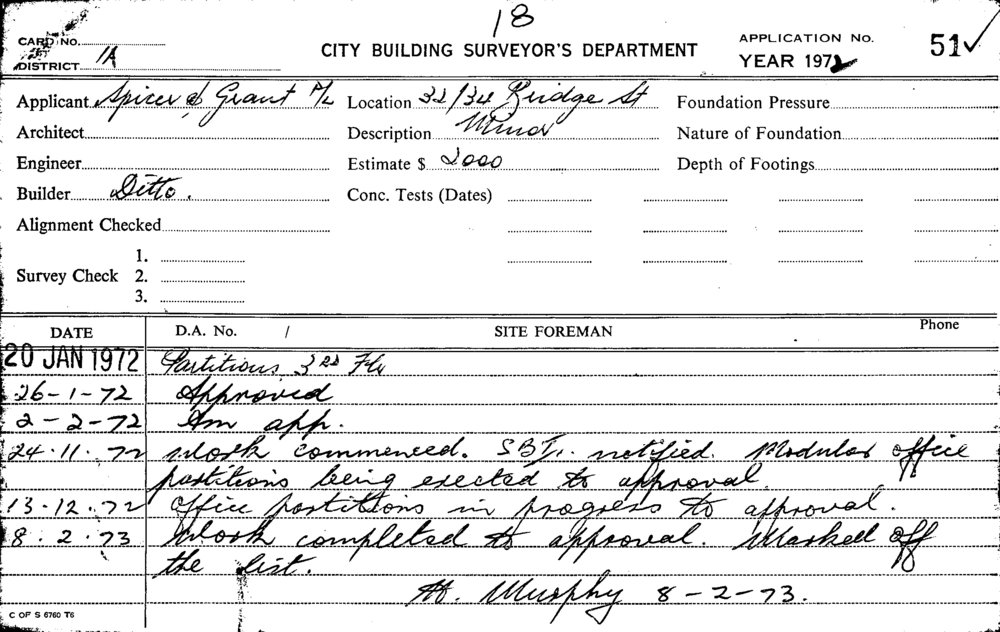 18
CARD No.
DISTRICT 1A
CITY BUILDING SURVEYOR'S DEPARTMENT
APPLICATION No. 51✓
YEAR 1972
Applicant Spicer & Grant P/L Location 32/34 Bridge St Foundation Pressure
Architect Description Minor Nature of Foundation
Engineer Estimate $ 2000 Depth of Footings
Builder Ditto. Conc. Tests (Dates)
Alignment Checked
Survey Check 1.
2.
3.
DATE D.A. No. / SITE FOREMAN Phone
20 JAN 1972 Partitions 3rd Flr
26-1-72 Approved
2-2-72 Am app.
24.11.72 Work commenced. notified. Modular office
partitions being erected to approval.
13.12.72 Office partitions in progress to approval.
8.2.73 Work completed to approval. Marked off
the list.
Murphy 8-2-73.
C OF S 6760 T6